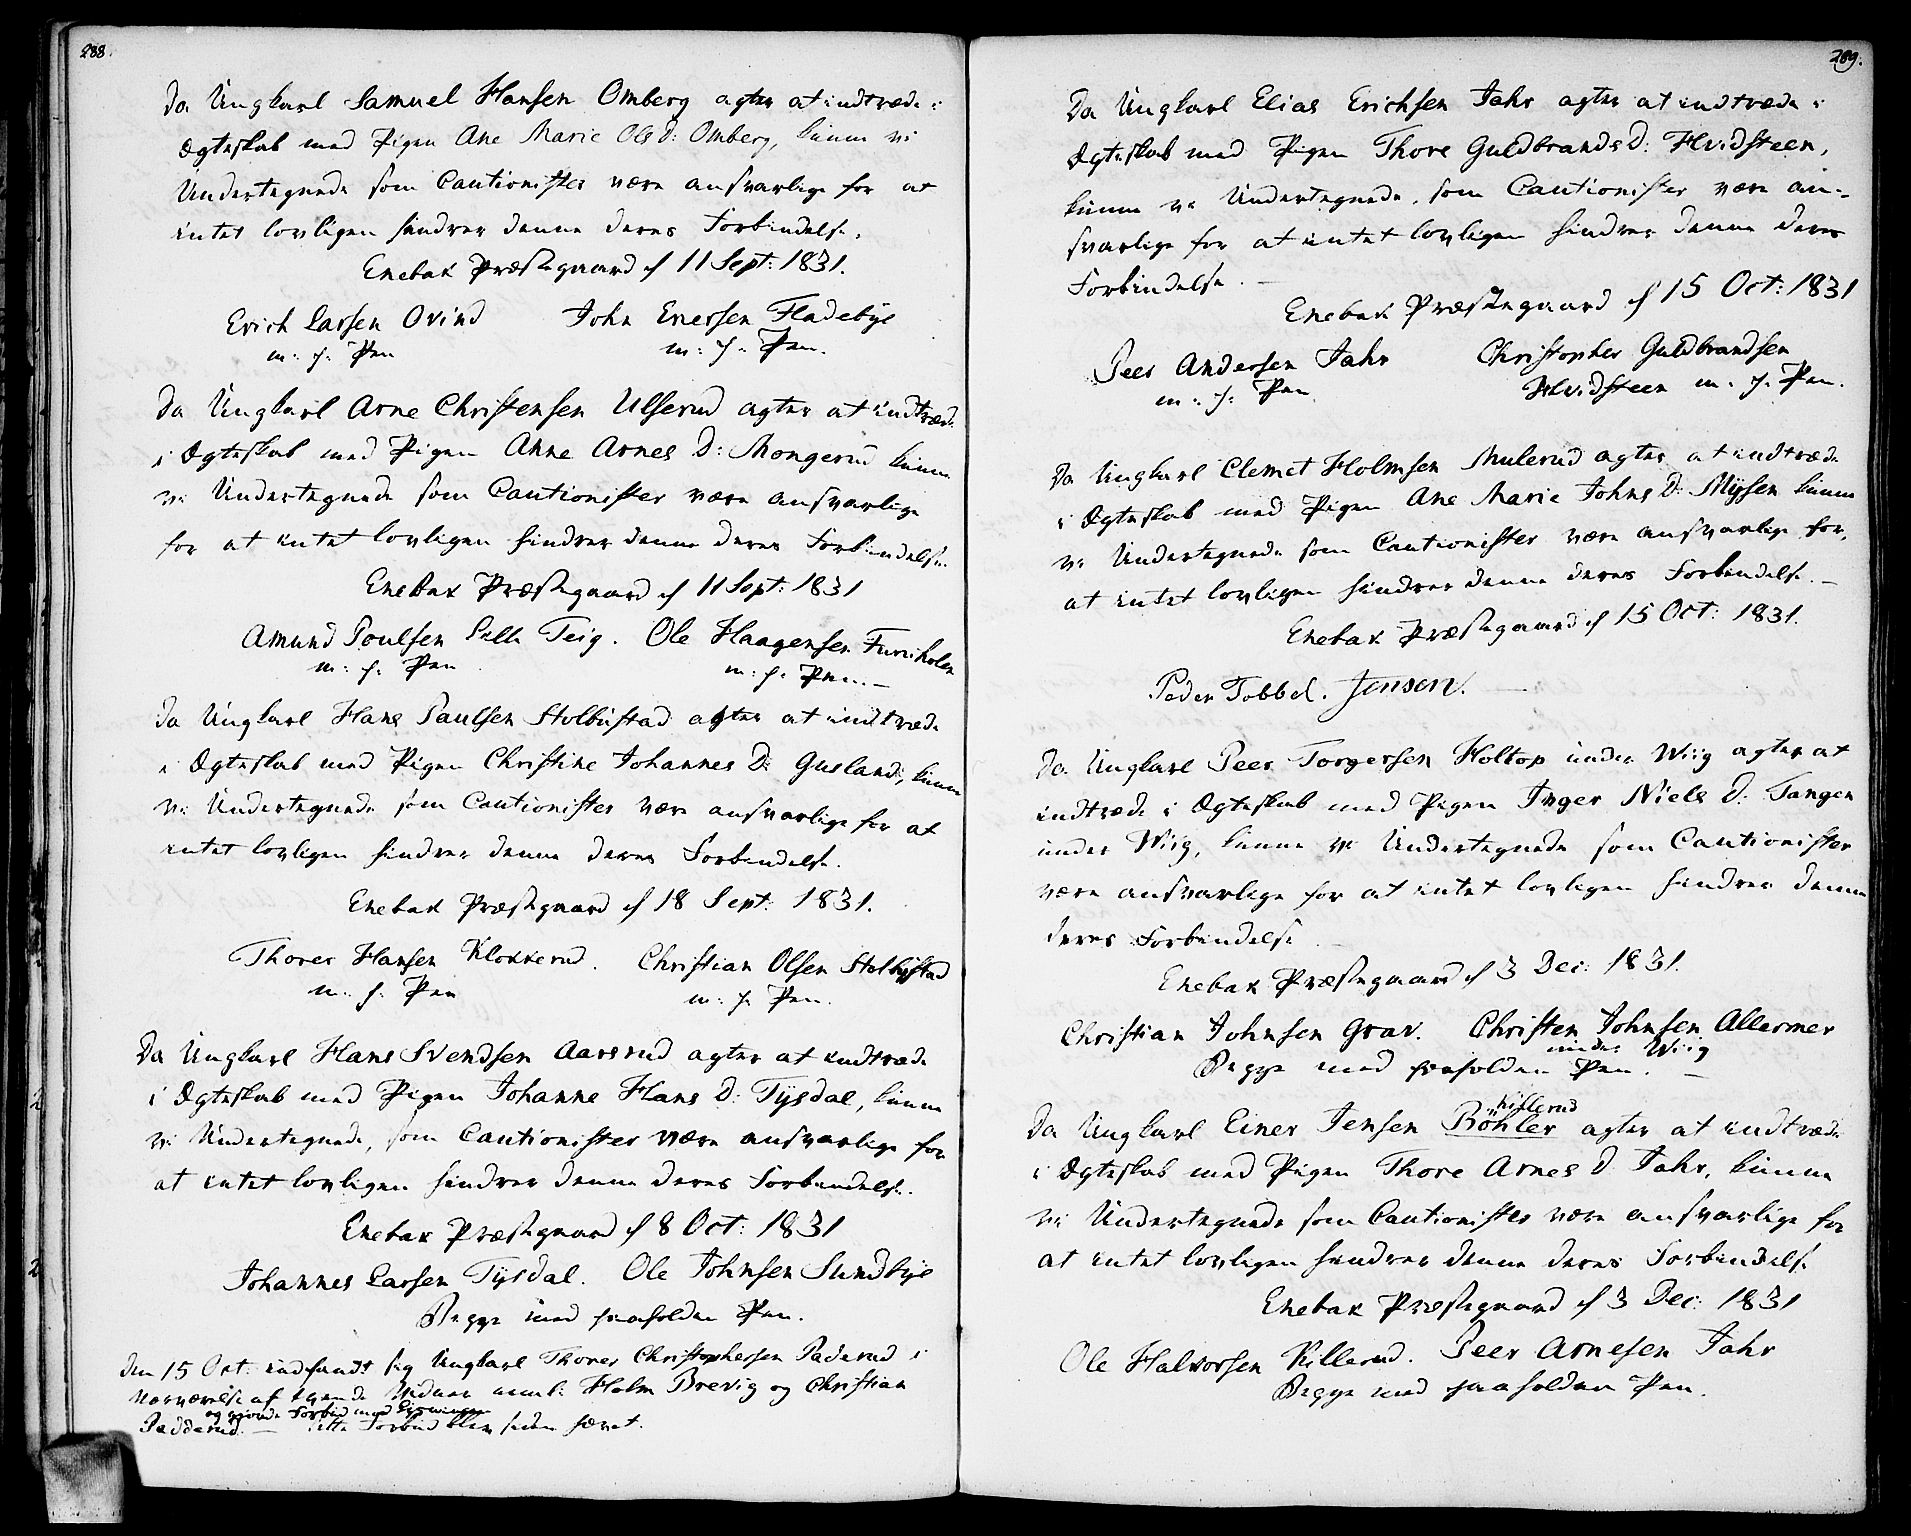 288.
Da Ungkarl Samuel Hansen Omberg agter at indtræde i
Ægteskab med Pigen Ane Marie Ols D: Omberg, kunne vi
Undertegnede som Cautionister være ansvarlige for at
intet lovligen hindrer denne deres Forbindelse.
Enebak Præstegaard d 11 Sept: 1831.
Erich Larsen Ovind John Enersen Fladebye
m: f: Pen m: f: Pen.
Da Ungkarl Arne Christensen Ulserud agter at indtræde
i Ægteskab med Pigen Anne Arnes D: Mongerud kunne
vi Undertegnede som Cautionister være ansvarlige
for at intet lovligen hindrer denne deres Forbindelse.
Enebak Præstegaard d 11 Sept: 1831
Amund Poulsen Teig. Ole Haagensen Furuholen
m: f: Pen m: f: Pen.
Da Ungkarl Hans Paulsen Stolbustad agter at indtræde
i Ægteskab med Pigen Christine Johannes D: Gusland, kunne
vi Undertegnede som Cautionister være ansvarlige for at
intet lovligen hindrer denne deres Forbindelse.
Enebak Præstegaard d 18 Sept: 1831.
Thorer Hansen Klokkerud. Christian Olsen Stolbystad
m: f: Pen m: f: Pen.
Da Ungkarl Hans Svendsen Aarsrud agter at indtræde
i Ægteskab med Pigen Johanne Hans D: Tysdal, kunne
vi Undertegnede, som Cautionister være ansvarlige for
at intet lovligen hindrer denne deres Forbindelse.
Enebak Præstegaard d 8 Oct: 1831
Johannes Larsen Tysdal. Ole Johnsen Sundbye
Begge med paaholden Pen.
Den 15 Oct: indfandt sig Ungkarl Thorer Christophersen Paderud i
Nærværelse af tvende Vidner neml: Holm Brevig og Christian
og gjorde Forbud mod Lysningen
Padderud. — dette Forbud blev siden hævet.
289.
Da Ungkarl Elias Erichsen Jahr agter at indtræde i
Ægteskab med Pigen Thore Guldbrands D: Hvidsteen,
kunne vi Undertegnede, som Cautionister være an-
svarlige for at intet lovligen hindrer denne deres
Forbindelse. —
Enebak Præstegaard d 15 Oct: 1831
Peer Andersen Jahr Christopher Guldbrandsen
m: f: Pen Hvidsteen m: f: Pen.
Da Ungkarl Clemet Holmsen Mulerud agter at indtræde
i Ægteskab med Pigen Ane Marie Johns D: Mysen kunne
vi Undertegnede som Cautionister være ansvarlige for,
at intet lovligen hindrer denne deres Forbindelse. —
Enebak Præstegaard d 15 Oct: 1831.
Peder Tobbel. Jensen.
Da Ungkarl Peer Torgersen Holtop under Wiig agter at
indtræde i Ægteskab med Pigen Inger Niels D: Tangen
under Wiig, kunne vi Undertegnede som Cautionister
være ansvarlige for at intet lovligen hindrer denne
deres Forbindelse
Enebak Præstegaard d 3 Dec: 1831.
Christian Johnsen Grav. Christen Johnsen Allermer
under Wiig
Begge med paaholden Pen. —
Killerud
Da Ungkarl Einer Jensen Böhler agter at indtræde
i Ægteskab med Pigen Thore Arnes D Jahr, kunne
vi Undertegnede som Cautionister være ansvarlige for
at intet lovligen hindrer denne deres Forbindelse
Enebak Præstegaard d 3 Dec: 1831
Ole Halvorsen Killerud. Peer Arnesen Jahr
Begge med paaholden Pen.